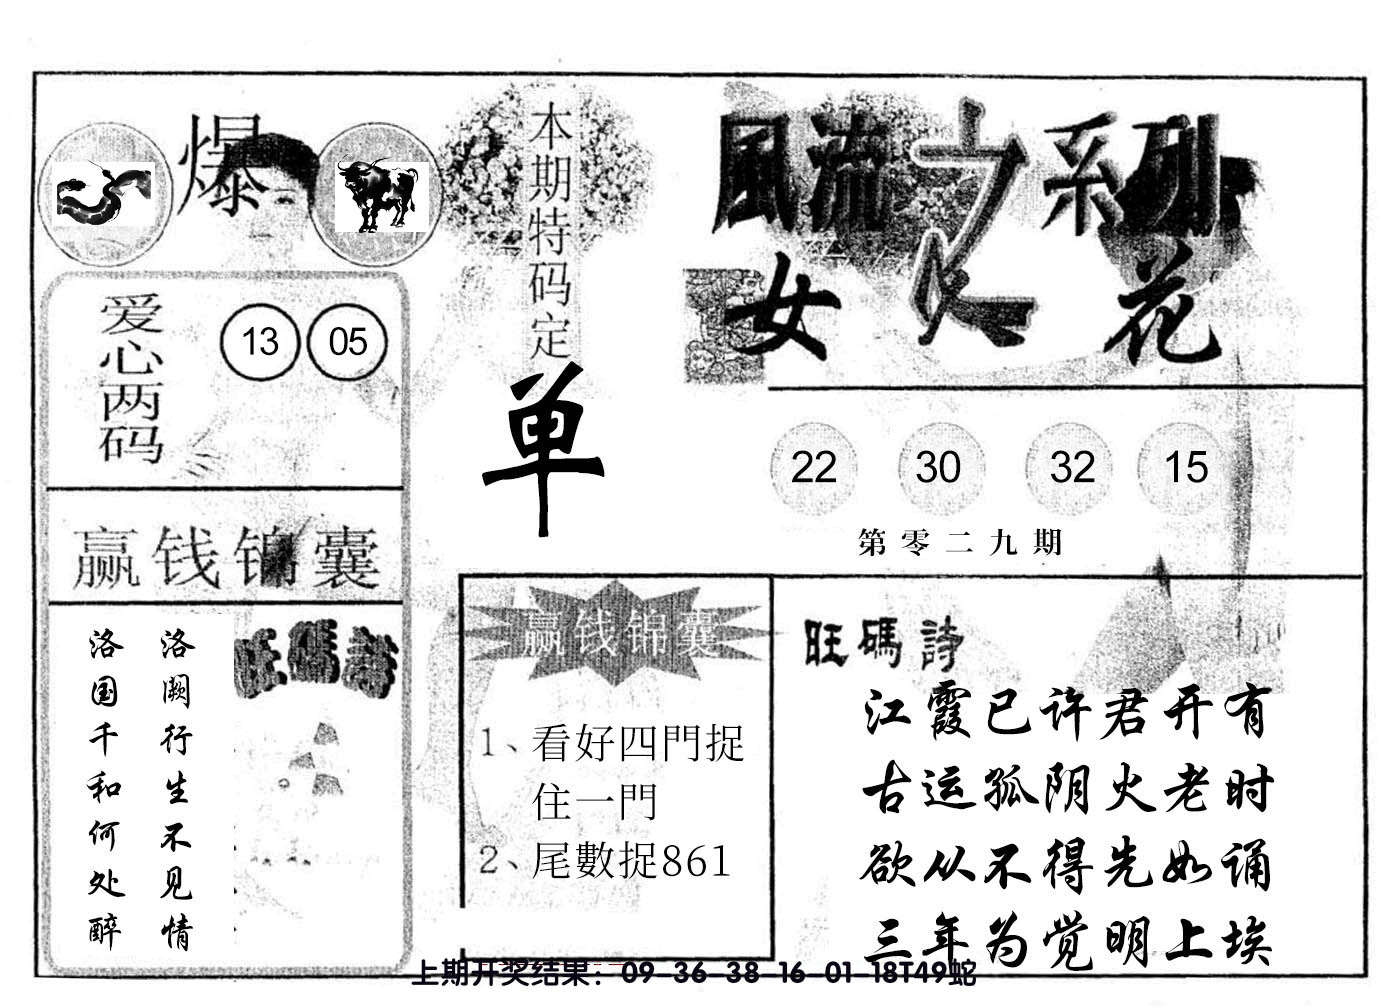 爆
本期特码定
单
風流之系列
女人花
爱心两码
13 05
22 30 32 15
第零二九期
赢钱锦囊
旺碼詩
洛阙行生不见情
洛国千和何处醉
赢钱锦囊
1、看好四門捉
住一門
2、尾數捉861
旺碼詩
江霞已许君开有
古运孤阴火老时
欲从不得先如诵
三年为觉明上埃
上期开奖结果：09-36-38-16-01-18T49蛇